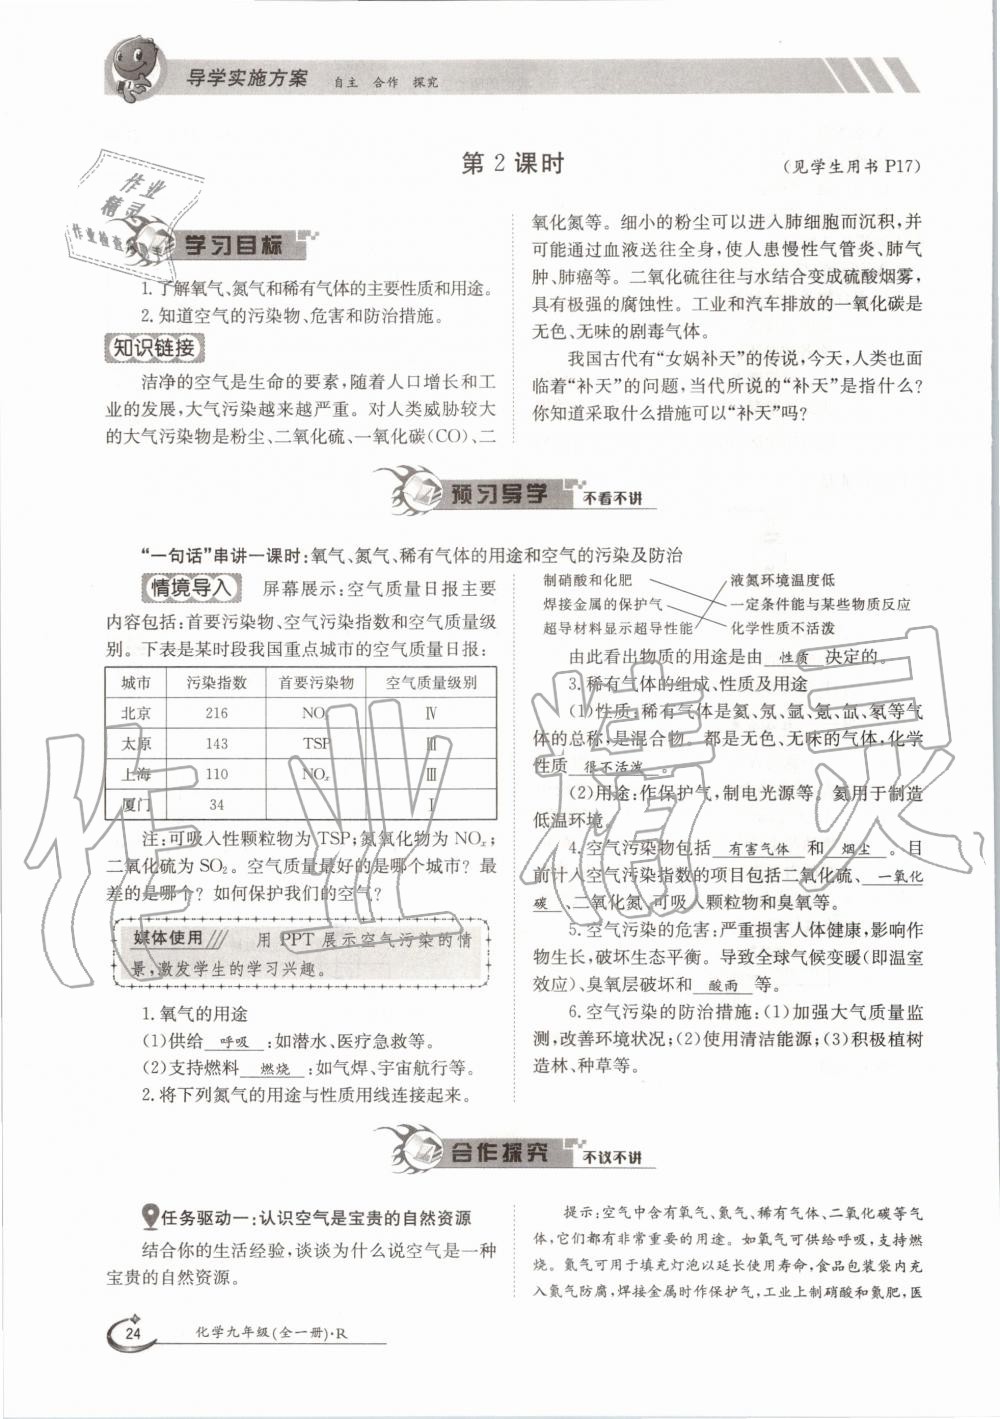 导学实施方案 自主 合作 探究
第2课时
(见学生用书 P17)
学习目标
1.了解氧气、氮气和稀有气体的主要性质和用途。
2.知道空气的污染物、危害和防治措施。
知识链接
洁净的空气是生命的要素,随着人口增长和工
业的发展,大气污染越来越严重。对人类威胁较大
的大气污染物是粉尘、二氧化硫、一氧化碳(CO)、二
氧化氮等。细小的粉尘可以进入肺细胞而沉积,并
可能通过血液送往全身,使人患慢性气管炎、肺气
肿、肺癌等。二氧化硫往往与水结合变成硫酸烟雾,
具有极强的腐蚀性。工业和汽车排放的一氧化碳是
无色、无味的剧毒气体。
我国古代有“女娲补天”的传说,今天,人类也面
临着“补天”的问题,当代所说的“补天”是指什么?
你知道采取什么措施可以“补天”吗?
预习导学 不看不讲
“一句话”串讲一课时:氧气、氮气、稀有气体的用途和空气的污染及防治
情境导入 屏幕展示:空气质量日报主要
内容包括:首要污染物、空气污染指数和空气质量级
别。下表是某时段我国重点城市的空气质量日报:
城市 污染指数 首要污染物 空气质量级别
北京 216 NOx Ⅳ
太原 143 TSP Ⅲ
上海 110 NOx Ⅲ
厦门 34 Ⅰ
注:可吸入性颗粒物为 TSP;氮氧化物为 NOx;
二氧化硫为 SO2。空气质量最好的是哪个城市?最
差的是哪个?如何保护我们的空气?
媒体使用 用 PPT 展示空气污染的情
景,激发学生的学习兴趣。
1.氧气的用途
(1)供给 呼吸 :如潜水、医疗急救等。
(2)支持燃料 燃烧 :如气焊、宇宙航行等。
2.将下列氮气的用途与性质用线连接起来。
制硝酸和化肥 液氮环境温度低
焊接金属的保护气 一定条件能与某些物质反应
超导材料显示超导性能 化学性质不活泼
由此看出物质的用途是由 性质 决定的。
3.稀有气体的组成、性质及用途
(1)性质:稀有气体是氦、氖、氩、氪、氙、氡等气
体的总称,是混合物。都是无色、无味的气体,化学
性质 很不活泼 。
(2)用途:作保护气,制电光源等。氦用于制造
低温环境。
4.空气污染物包括 有害气体 和 烟尘 。目
前计入空气污染指数的项目包括二氧化硫、 一氧化
碳 、二氧化氮、可吸入颗粒物和臭氧等。
5.空气污染的危害:严重损害人体健康,影响作
物生长,破坏生态平衡。导致全球气候变暖(即温室
效应)、臭氧层破坏和 酸雨 等。
6.空气污染的防治措施:(1)加强大气质量监
测,改善环境状况;(2)使用清洁能源;(3)积极植树
造林、种草等。
合作探究 不议不讲
任务驱动一:认识空气是宝贵的自然资源
结合你的生活经验,谈谈为什么说空气是一种
宝贵的自然资源。
提示:空气中含有氧气、氮气、稀有气体、二氧化碳等气
体,它们都有非常重要的用途。如氧气可供给呼吸,支持燃
烧。氮气可用于填充灯泡以延长使用寿命,食品包装袋内充
入氮气防腐,焊接金属时作保护气,工业上制硝酸和氮肥,医
24 化学九年级(全一册)·R
作业精灵
作业
精灵
作业检查